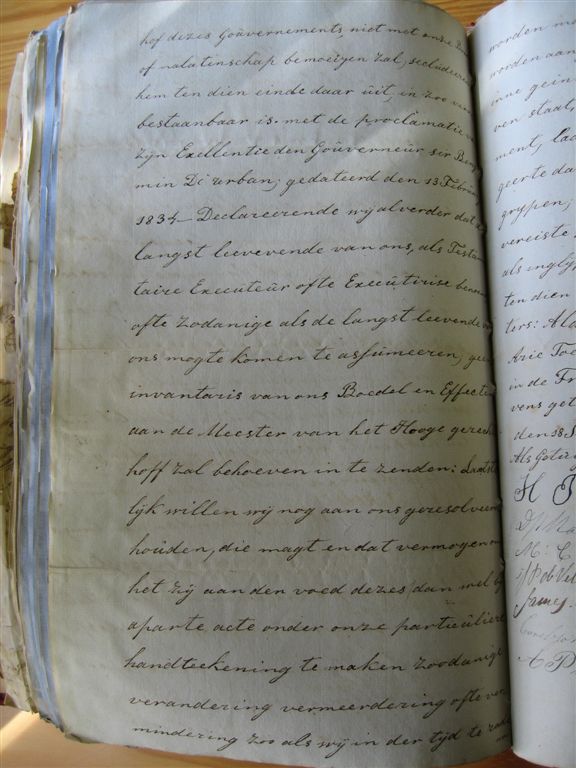 hof dezes Goúvernements, niet met onze
of nalatenschap bemoeijen zal, secludeere
hem ten dien einde daar úit, in zoo ver
bestaanbaar is met de proclamatie
zyn Exellentie den Goúverneúr sir Benja
min D'urban, gedateerd den 13 Febrúa
1834 — Declareerende wy alverder dat
langst leevevende van ons, als Testam
taire Executeúr ofte Execútirise benoem
ofte zodanige als de langst leevende
ons mogte komen te assúmeeren, geen
invantaris van ons Boedel en Effecten
aan de Meester van het Hooge gerechts
hoff zal behoeven in te zenden: Laatste
lijk willen wy nog aan ons geresolveerd
hoúden, die magt en dat vermogen om
het zij aan den voed dezes, dan wel by
aparte acte onder onze particúliere
handteekening te maken zoodanige
verandering vermeerdering ofte ver
mindering zoo als wy in der tijd te rade
worden
worden aan
inne gein
ven staat,
ment, laa
geerte da
grypen;
vereiste
als inglij
ten dien
ters:
Arie
in de Fr
vens get
den 28 S
Als Getúig
H
M: C
James
A P